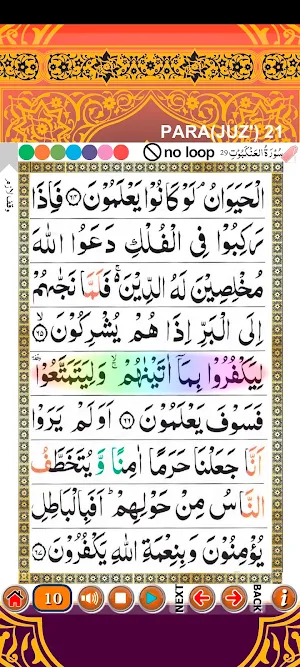 PARA(JUZ') 21
no loop
سُوْرَةُ الْعَنْكَبُوْتِ 29
الْحَيَوَانُ ۘ لَوْ كَانُوْا يَعْلَمُوْنَ ﴿۶۴﴾ فَاِذَا
رَكِبُوْا فِى الْفُلْكِ دَعَوُا اللّٰهَ
مُخْلِصِيْنَ لَهُ الدِّيْنَ ۚ۬ فَلَمَّا نَجّٰىهُمْ
اِلَى الْبَرِّ اِذَا هُمْ يُشْرِكُوْنَ ﴿۶۵﴾
لِيَكْفُرُوْا بِمَاۤ اٰتَيْنٰهُمْ ۙۚ وَلِيَتَمَتَّعُوْا
فَسَوْفَ يَعْلَمُوْنَ ﴿۶۶﴾ اَوَلَمْ يَرَوْا
اَنَّا جَعَلْنَا حَرَمًا اٰمِنًا وَّ يُتَخَطَّفُ
النَّاسُ مِنْ حَوْلِهِمْ ؕ اَفَبِالْبَاطِلِ
يُؤْمِنُوْنَ وَبِنِعْمَةِ اللّٰهِ يَكْفُرُوْنَ ﴿۶۷﴾
10
NEXT
BACK
i